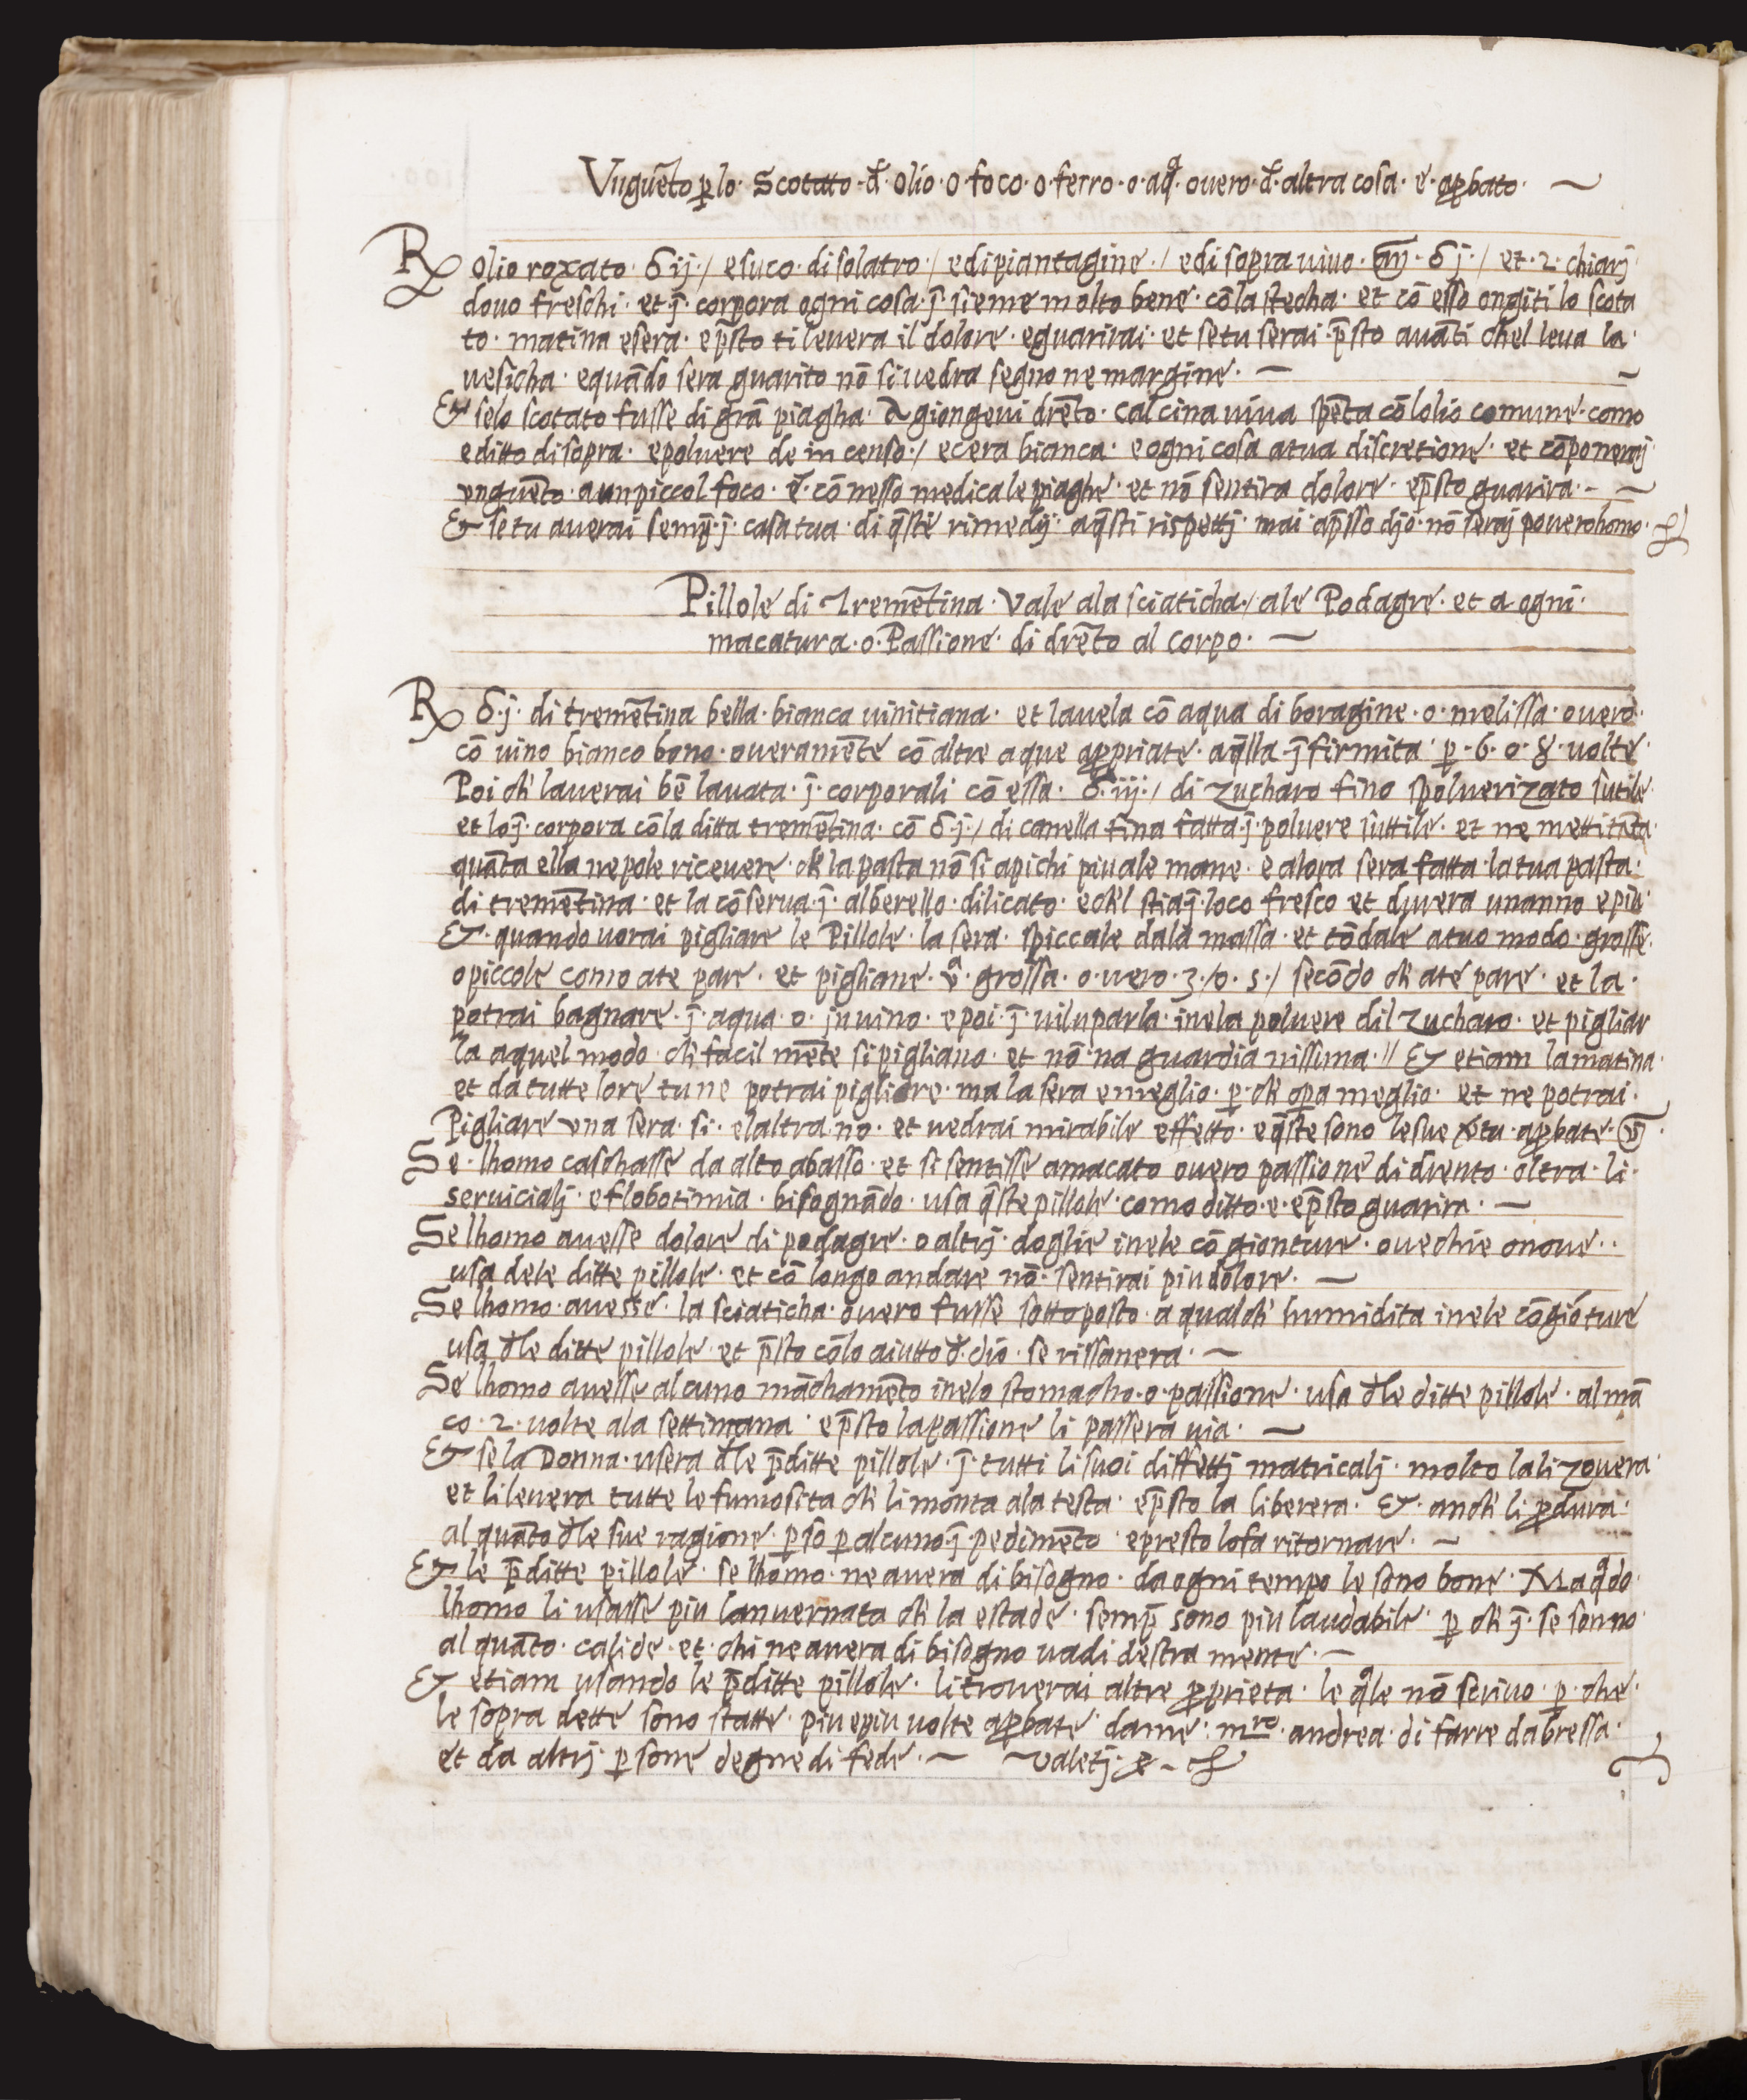 Vnguēto ꝑ lo· Scotatto· đ· olio· o· foco· o· ferro· o· aqᵃ· ouero· đ· altra cosa· e· aꝓbato· ~
℞ olio roxato· δ ij·/ e suco· di solatro·/ e di piantagine·/ e di sopra uiuo· añ· δ j·/ et· 2· chiarj
douo freschi· et j̄· corpora ogni cosa· j̄· sieme molto bene· cō la stecha· et cō esso ongiti lo scota
to· matina e sera· e p̄sto ti leuera il dolore· e guarirai· et se tu serai· p̄sto auāti chel leua la·
uesicha· e quādo sera guarito nō si uedra segno ne margine· ~
Et se lo scotato fusse di grā piagha· Agiongeui drēto· calcina uiua spēta cō lolio comune· como
e ditto di sopra· e poluere de incenso·/ e cera bianca· e ogni cosa a tua discretione· et cōponeraj
vnguēto· a un piccol foco· e· cō nesso medica le piaghe· et nō sentira dolore· e p̄sto guarira· ~
Et se tu auerai semꝑ· j̄· casa tua· di q̄ste rimedij· a q̄sti rispettj· mai ap̄sso djo· nō seraj pouero homo·
Pillole di Tremētina· Vale ala sciaticha·/ ale Podagre· et a ogni·
macatura· o· Passione· di drēto al corpo· ~
℞ δ· j· di tremētina bella· bianca uinitiana· et lauela cō aqua di boragine· o· melissa· ouero·
cō uino bianco bono· oueramēte cō altre aque apꝓpriate· a q̄lla j̄firmita· ꝑ· 6· o· 8· uolte·
Poi ch̄ lauerai bē lauata· j̄· corporali cō essa· δ· iij·/ di zucharo fino spoluerizato sutile·
et lo j̄· corpora cō la ditta tremētina· cō δ· j·/ di canella fina fatta· j̄· poluere suttile· et ne metti tāta·
quāta ella ne pole riceuere· ch̄ la pasta nō si apichi piu ale mane· e alora sera fatta la tua pasta·
di tremētina· et la cōserua· j̄· alberello· dilicato· e ch̄l stia j̄· loco fresco et durera un anno e piu·
Et· quando uorai pigliare le Pillole· la sera· spiccale dala massa· et tōdale a tuo modo· grosse·
o piccole como a te pare· et pigliane· vᵃ· grossa· o· uero· 3·/o· 5·/ secōdo ch̄ a te pare· et la·
potrai bagnare· j̄· aqua· o· in uino· e poi· j̄· uiluparla· inela poluere dil zucharo· et pigliar
la a quel modo· ch̄ facil mēte si pigliano· et nō· na guardia nissuna· // Et etiam la matina·
et da tutte lore tu ne potrai pigliare· ma la sera e meglio· ꝑ· ch̄ oꝑa meglio· et ne potrai·
Pigliare vna sera· si· e laltra· no· et uedrai mirabile effetto· e q̄ste sono le sue v̄tu· aꝓbate·
Se· lhomo caschasse da alto abasso· et si sentisse amacato ouero passione di drento· oltra· li·
seruicialj· e flobotimia· bisognādo· usa q̄ste pillole· como ditto· e· e p̄sto guarira· ~
Se lhomo auesse dolore di podagre· o altrj· doglie inele cōgionture· o uechie o noue··
usa dele ditte pillole· et cō longo andare nō· sentirai piu dolore· ~
Se lhomo· auesse· la sciaticha· ouero fusse sottoposto· a qualch̄ humidita inele cōgiōture
usa đle ditte pillole· et p̄sto cō lo aiutto đ· dio· se rissanera· ~
Se lhomo auesse alcuno māchamēto inelo stomacho· o· passione· usa đle ditte pillole· al mā
co· 2· uolte ala settimana· e p̄sto la passione li passera uia· ~
Et se la Donna· usera đle p̄ditte pillole· j̄· tutti li suoi diffettj matricalj· molto lalizouera·
et li leuera tutte le fumosita ch̄ li monta ala testa· e p̄sto la liberera· Et· anch̄ li ꝑdura·
al quāto đle sue ragione· ꝑso ꝑ alcuno j̄· pedimēto· e presto lo fa ritornare· ~
Et le p̄ditte pillole· se lhomo· ne auera di bisogno· da ogni tempo le sono bone· Ma q̄do·
lhomo li usasse piu lanuernata ch̄ la estade· semꝑ sono piu laudabile· ꝑ ch̄ j̄· se sonno·
al quāto· calide· et· chi ne auera di bisogno uadi destra mente· ~
Et etiam usando le p̄ditte pillole· li trouerai altre ꝓprieta· le q̄le nō scriuo· ꝑ· che·
le sopra dette sono statte· piu e piu uolte aꝓbate· da me· mʳᵒ· andrea· di farre da bressa·
et da altrj· ꝑsone degne di fede· ~ Valetj